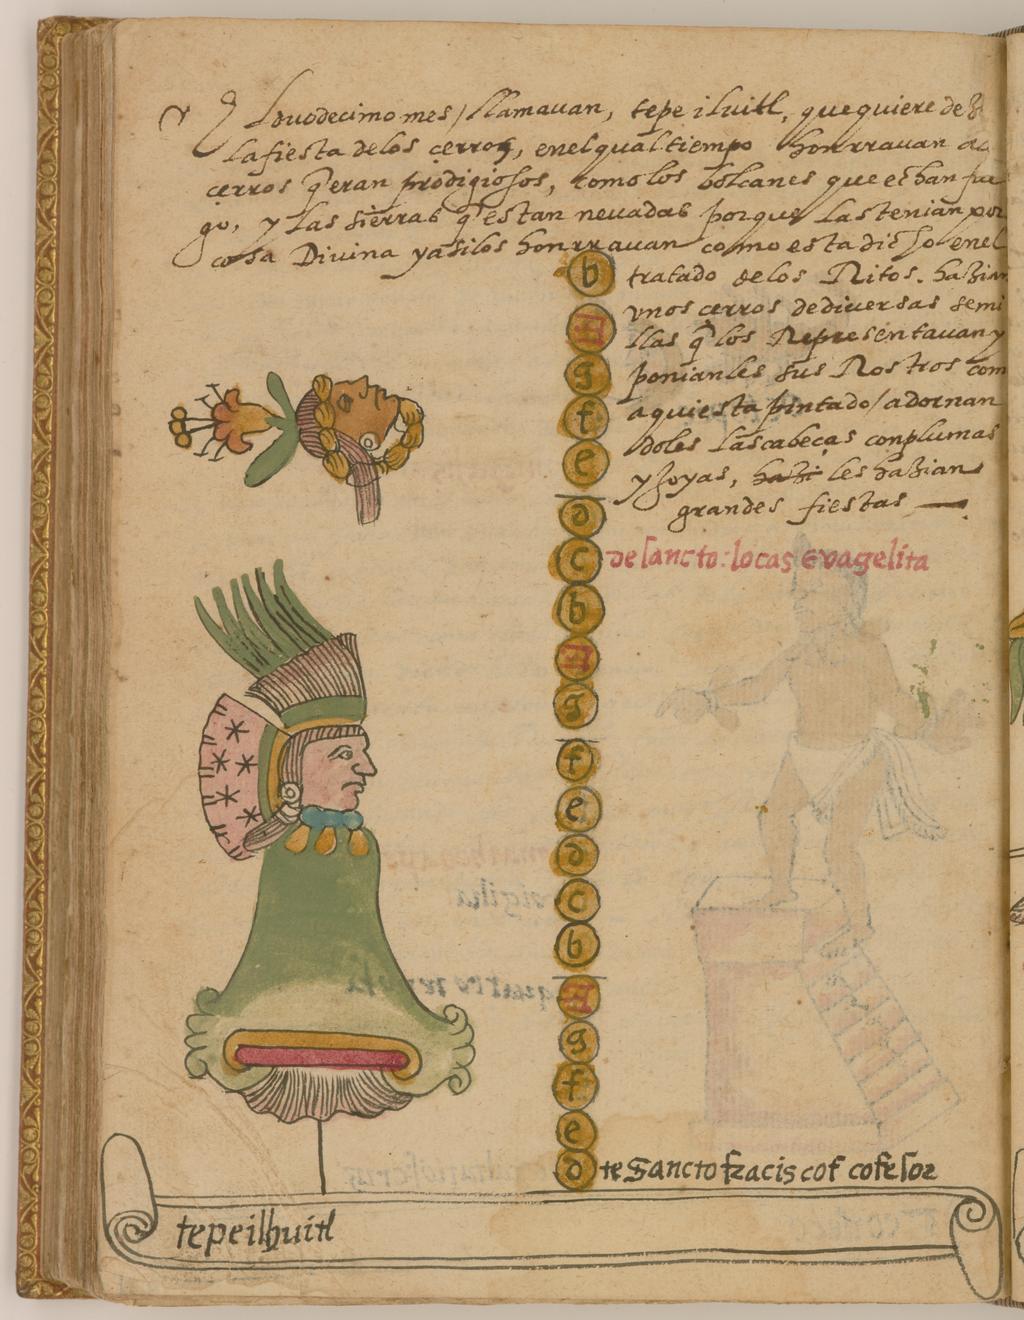 El duodecimo mes/llamauan, tepe iluitl, que quiere dezir
la fiesta de los cerros, en el qual tiempo honrrauan a
cerros q̃ eran prodigiosos, como los bolcanes que echan fue
go, y las sierras q̃ estan neuadas porque las tenian por
cosa Diuina y asi los honrrauan como esta dicho en el
tratado de los Ritos. hazian
vnos cerros de diuersas semi
llas q̃ los Representauan y
ponianles sus Rostros com
aqui esta pintado/adornan
doles las cabeças con plumas
y Joyas, hazi les hazian
grandes fiestas
b
A
g
f
e
d
c de sancto: locas evagelita
b
A
g
f
e
d
c
b
A
g
f
e
d te Sancto fracis cof cofesor
tepeilhuitl